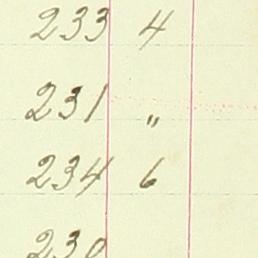 233 4
231 "
234 6
230